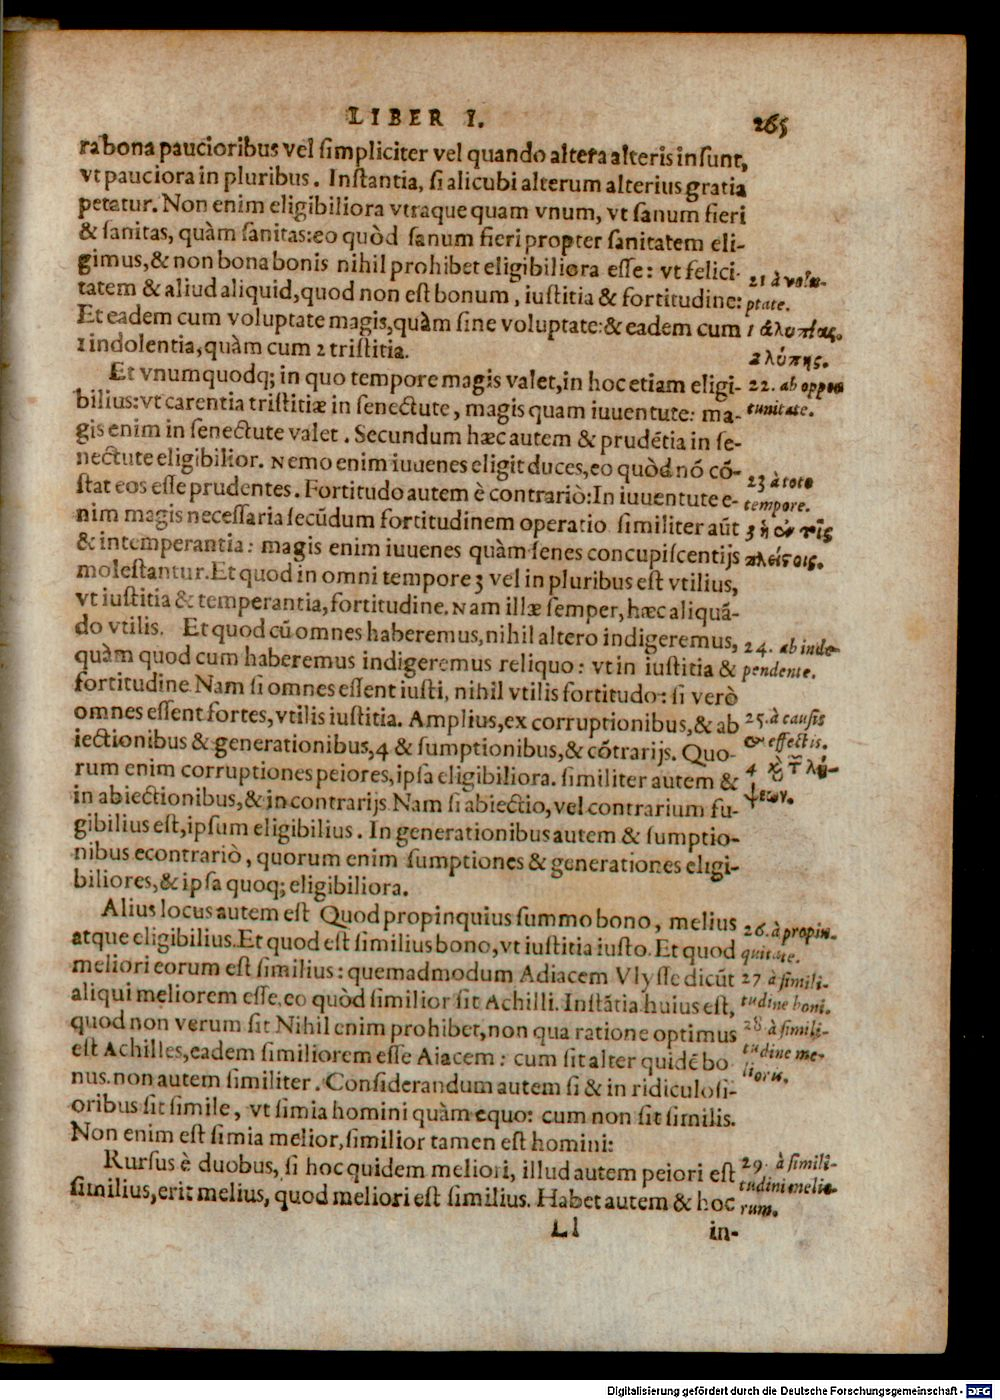 LIBER I. 265
ra bona paucioribus vel simpliciter vel quando altera alteris insunt,
vt pauciora in pluribus. Instantia, si alicubi alterum alterius gratia
petatur. Non enim eligibiliora vtraque quam vnum, vt sanum fieri
& sanitas, quàm sanitas: eo quòd sanum fieri propter sanitatem eli-
gimus, & non bona bonis nihil prohibet eligibiliora esse: vt felici-
tatem & aliud aliquid, quod non est bonum, iustitia & fortitudine:
Et eadem cum voluptate magis, quàm sine voluptate: & eadem cum
1 indolentia, quàm cum 2 tristitia.
21 à volu-
ptate.
1 ἀλυπίας.
2 λύπης.
Et vnumquodq; in quo tempore magis valet, in hoc etiam eligi-
bilius: vt carentia tristitiæ in senectute, magis quam iuuentute: ma-
gis enim in senectute valet. Secundum hæc autem & prudētia in se-
nectute eligibilior. Nemo enim iuuenes eligit duces, eo quòd nō cō-
stat eos esse prudentes. Fortitudo autem è contrariò: In iuuentute e-
nim magis necessaria secūdum fortitudinem operatio similiter aūt
& intemperantia: magis enim iuuenes quàm senes concupiscentijs
molestantur. Et quod in omni tempore 3 vel in pluribus est vtilius,
vt iustitia & temperantia, fortitudine. Nam illæ semper, hæc aliquā-
do vtilis. Et quod cū omnes haberemus, nihil altero indigeremus,
quàm quod cum haberemus indigeremus reliquo: vt in iustitia &
fortitudine. Nam si omnes essent iusti, nihil vtilis fortitudo: si verò
omnes essent fortes, vtilis iustitia. Amplius, ex corruptionibus, & ab
iectionibus & generationibus, 4 & sumptionibus, & cōtrarijs. Quo-
rum enim corruptiones peiores, ipsa eligibiliora. similiter autem &
in abiectionibus, & in contrarijs Nam si abiectio, vel contrarium fu-
gibilius est, ipsum eligibilius. In generationibus autem & sumptio-
nibus econtrariò, quorum enim sumptiones & generationes eligi-
biliores, & ipsa quoq; eligibiliora.
22. ab oppor
tunitate.
23 à toto
tempore.
3 ἢ ἐν τοῖς
πλείστοις.
24. ab inde-
pendente.
25. à causis
& effectis.
4 λή-
ψεων.
Alius locus autem est Quod propinquius summo bono, melius
atque eligibilius. Et quod est similius bono, vt iustitia iusto. Et quod
meliori eorum est similius: quemadmodum Adiacem Vlysse dicūt
aliqui meliorem esse, eo quòd similior sit Achilli. Instātia huius est,
quod non verum sit Nihil enim prohibet, non qua ratione optimus
est Achilles, eadem similiorem esse Aiacem: cum sit alter quidē bo
nus. non autem similiter. Considerandum autem si & in ridiculosi-
oribus sit simile, vt simia homini quàm equo: cum non sit similis.
Non enim est simia melior, similior tamen est homini:
26. à propin-
quitate.
27 à simili-
tudine boni.
28 à simili-
tudine me-
lioris.
Rursus è duobus, si hoc quidem meliori, illud autem peiori est
similius, erit melius, quod meliori est similius. Habet autem & hoc
29. à simili-
tudini melio-
rum.
Ll in-
Digitalisierung gefördert durch die Deutsche Forschungsgemeinschaft - DFG